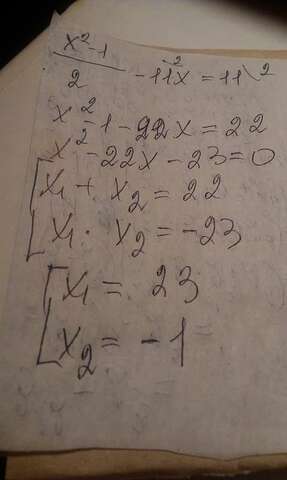 x²-1
2 -11x\² = 11\²
x²-1-22x = 22
x²-22x-23=0
[x₁ + x₂ = 22
[x₁ · x₂ = -23
[x₁ = 23
[x₂ = -1